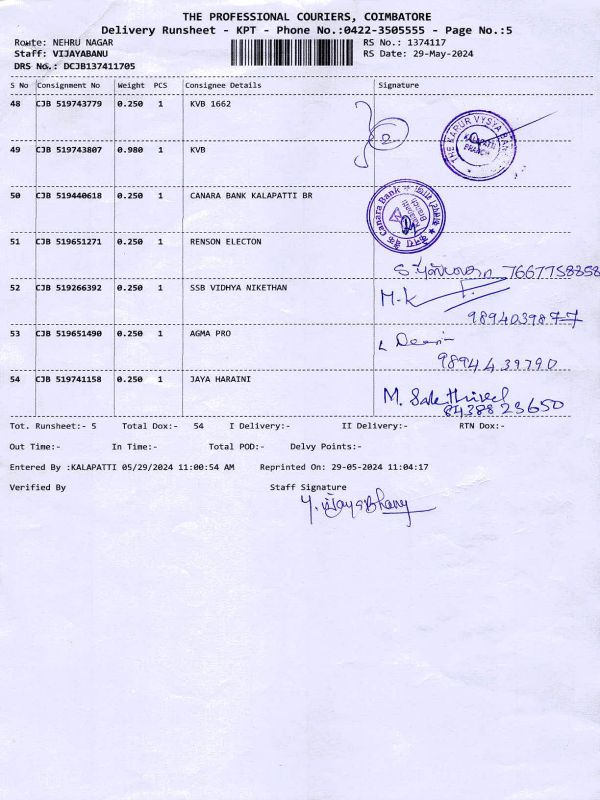 THE PROFESSIONAL COURIERS, COIMBATORE
Delivery Runsheet - KPT - Phone No.:0422-3505555 - Page No.:5
Route: NEHRU NAGAR RS No.: 1374117
Staff: VIJAYABANU RS Date: 29-May-2024
DRS No.: DCJB137411705
S No Consignment No Weight PCS Consignee Details Signature
48 CJB 519743779 0.250 1 KVB 1662
2
THE KARUR VYSYA BANK
KALAPATTI
BRANCH
49 CJB 519743807 0.980 1 KVB
50 CJB 519440618 0.250 1 CANARA BANK KALAPATTI BR
Canara Bank
Branch
51 CJB 519651271 0.250 1 RENSON ELECTON
7667758858
52 CJB 519266392 0.250 1 SSB VIDHYA NIKETHAN
M-K
9894039877
53 CJB 519651490 0.250 1 AGMA PRO
9894439790
54 CJB 519741158 0.250 1 JAYA HARAINI
M. Sakthivel
8438823650
Tot. Runsheet:- 5 Total Dox:- 54 I Delivery:- II Delivery:- RTN Dox:-
Out Time:- In Time:- Total POD:- Delvy Points:-
Entered By :KALAPATTI 05/29/2024 11:00:54 AM Reprinted On: 29-05-2024 11:04:17
Verified By Staff Signature
Y. VijayaBhanu